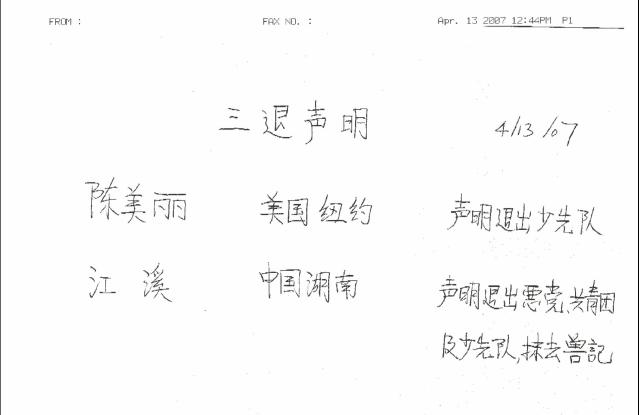 FROM : FAX NO. : Apr. 13 2007 12:44PM P1
三退声明 4/13/07
陈美丽 美国纽约 声明退出少先队
江溪 中国湖南 声明退出恶党、共青团
及少先队,抹去兽記